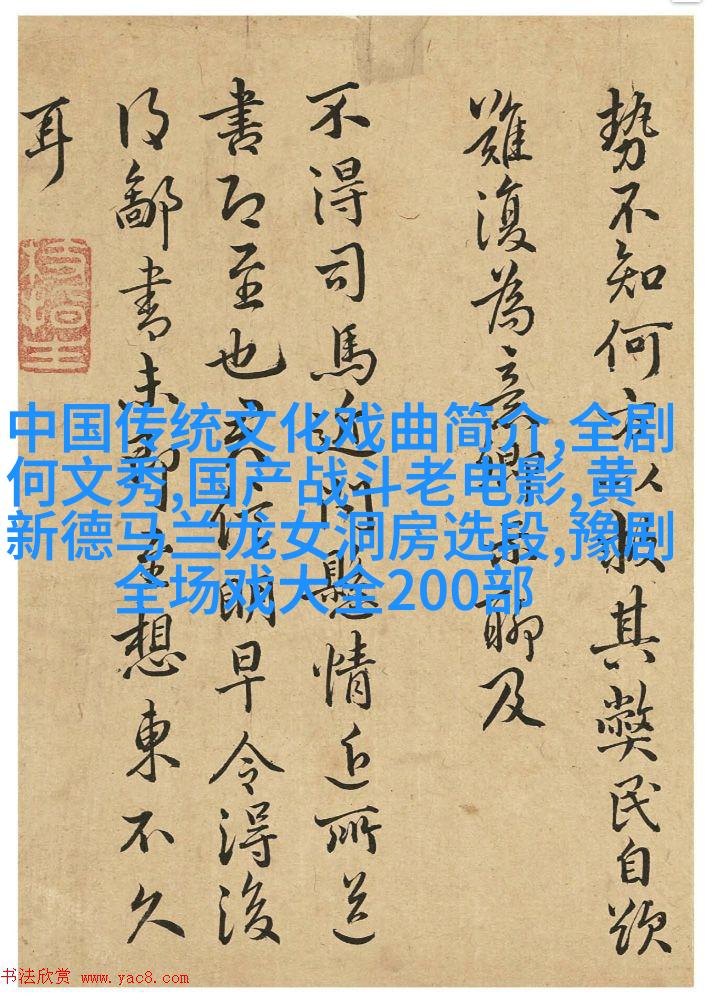 勢不知何方以其弊民自欲
難復為意卿聊及
不得司馬近問懸情近所送
書即至也作明早令得後
得鄙書未想東不久
耳
中国传统文化戏曲简介,全剧
何文秀,国产战斗老电影,黄
新德马兰龙女洞房选段,豫剧
全场戏大全200部
书法欣赏 www.yac8.com